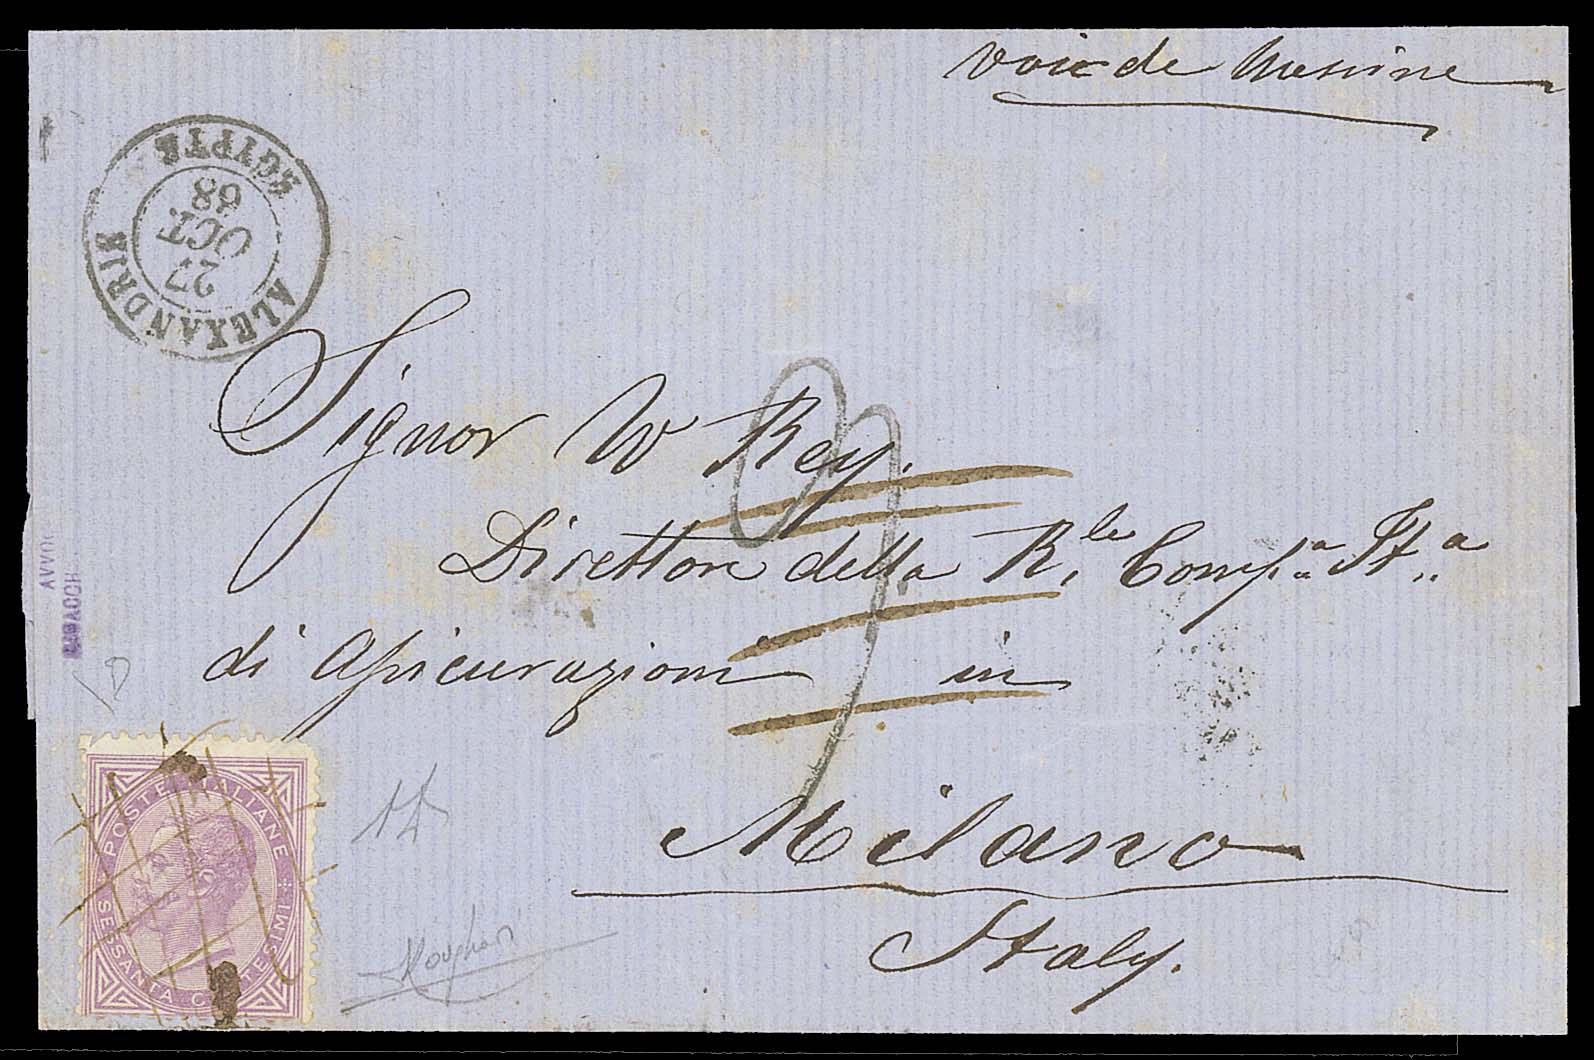 voie de Messine
ALEXANDRIE
EGYPTE
27
OCT.
68
Signor W Rey.
Direttore della R.le Comp.a It.a
di Assicurazioni in
Milano
Italy.
POSTE ITALIANE
SESSANTA CENTESIMI